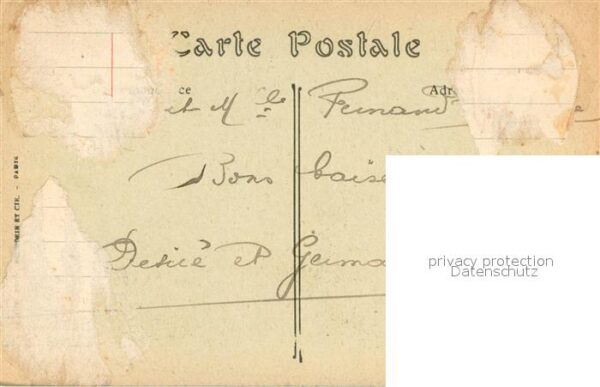 Carte Postale
et Mlle Fernand
Bons baise
Desiré et Germa
ET CIE. - PARIS
privacy protection
Datenschutz